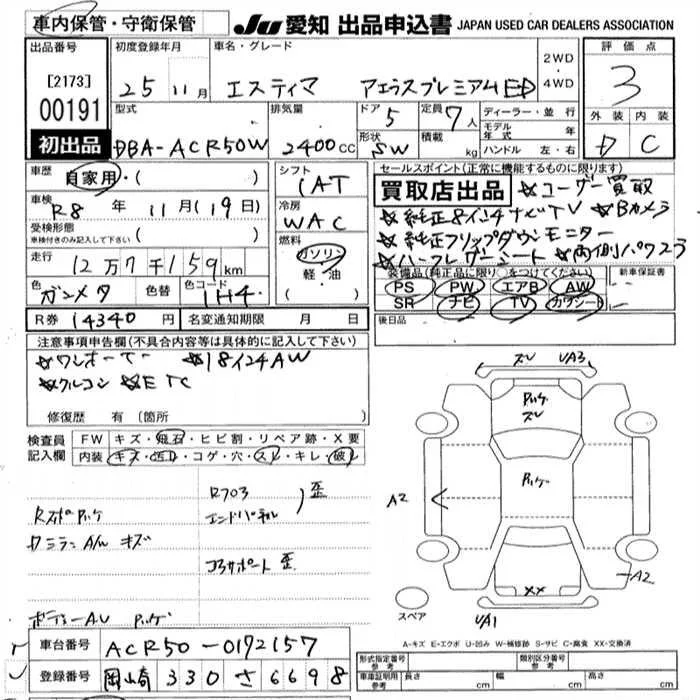 車内保管・守衛保管
JU 愛知 出品申込書 JAPAN USED CAR DEALERS ASSOCIATION
出品番号
[2173]
00191
初出品
初度登録年月
25 11月
車名・グレード
エスティマ アエラスプレミアムED
2WD
・
4WD
評価点
3
外装 内装
D C
型式
DBA-ACR50W
排気量
2400cc
ドア 5
形状 SW
定員 7人
積載 kg
ディーラー・並行
モデル年式 年
ハンドル 左・右
車歴 自家用・( )
車検 R8年 11月(19日)
受検形態
車検付きのみ記入して下さい ( )
走行 12万7千159km
色 ガンメタ 色替 色コード 1H4
R券 14340円 名変通知期限 月 日
シフト
IAT
冷房
WAC
燃料
ガソリン
軽・油
( )
セールスポイント(正常に機能するものに限ります)
買取店出品 ☆ユーザー買取
☆純正8インチナビTV ☆Bカメラ
☆純正フリップダウンモニター
☆ハーフレザーシート ☆両側パワスラ
装備品(純正品に限り○をつけてください)
PS PW エアB AW
SR ナビ TV カワシート
新車保証書
後日品
注意事項申告欄(不具合内容等は具体的に記入して下さい)
☆ワンオーナー ☆18インチAW
☆クルコン ☆ETC
修復歴 有(箇所 )
検査員記入欄
FW キズ・飛石・ヒビ割・リペア跡・X要
内装 キズ・汚れ・コゲ・穴・スレ・キレ・破れ
歪
エンドパネル
キズ
コアサポート 歪
ズレ UA3
ズレ
A2
A2
XX
UA1
スペア
A-キズ E-エクボ U-凹み W-補修跡 S-サビ C-腐食 XX-交換済
車台番号 ACR50-0172157
登録番号 岡崎 330 さ6698
形式指定番号 参考
類別区分番号 参考
車庫証明用 参考 長さ cm 幅 cm 高さ cm